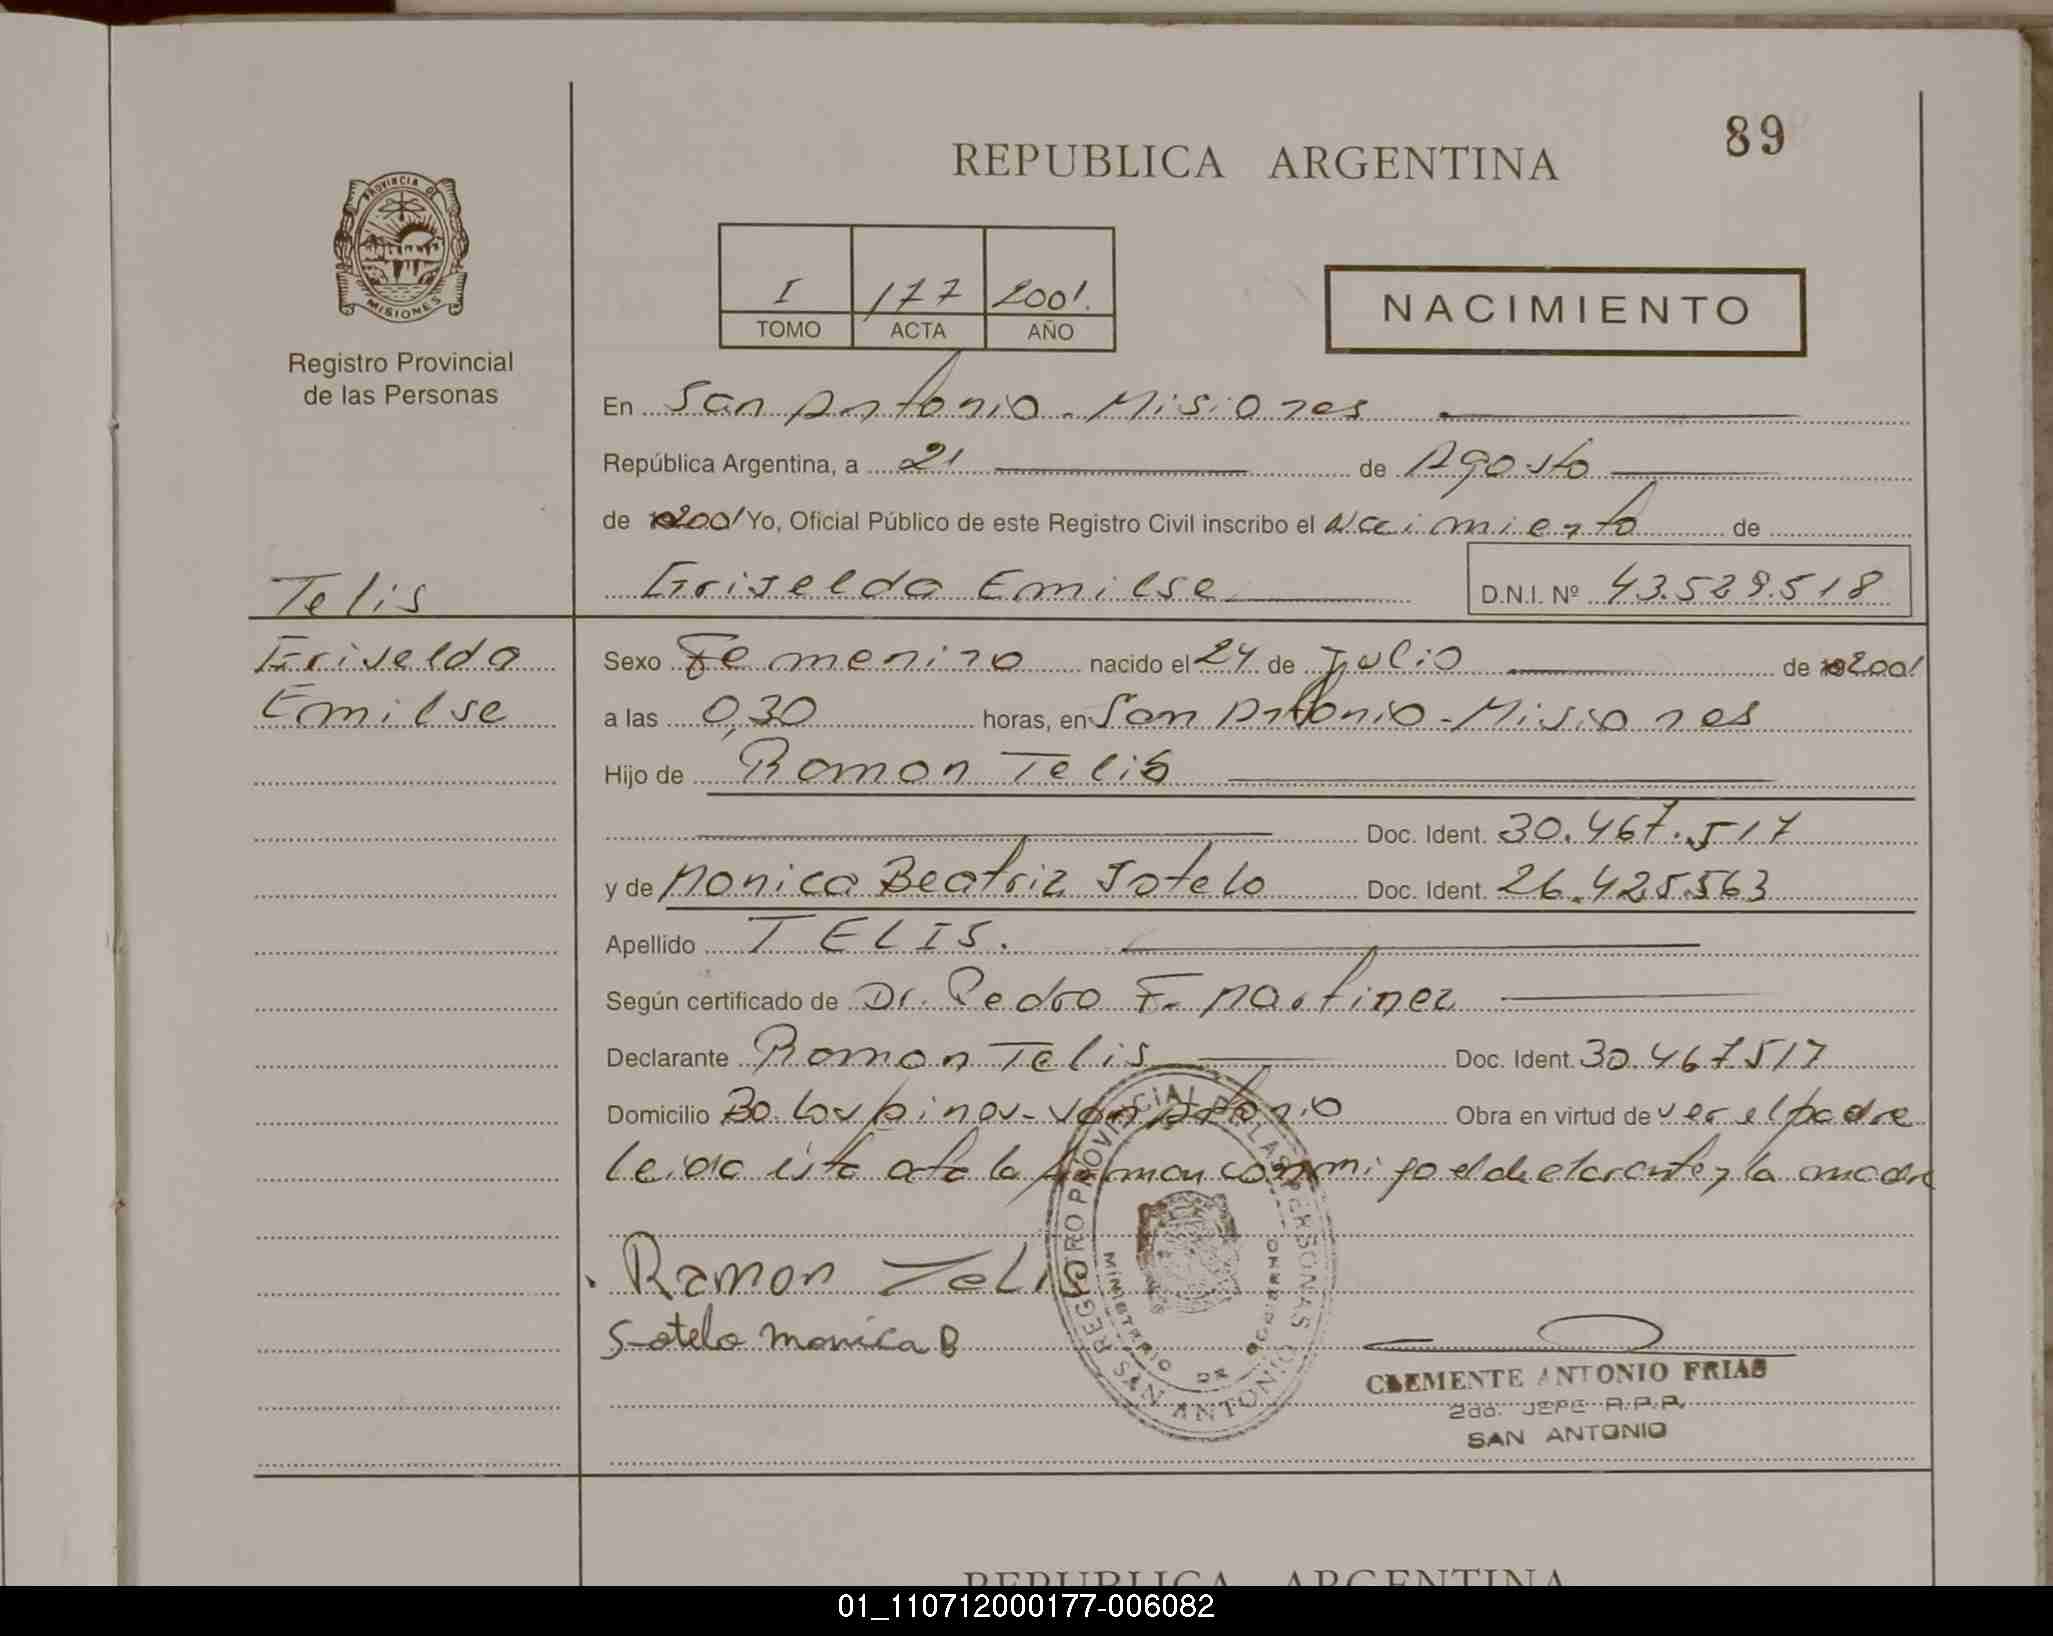 89
REPUBLICA ARGENTINA
PROVINCIA DE
MISIONES
Registro Provincial
de las Personas
I 177 2001.
TOMO ACTA AÑO
NACIMIENTO
En San Antonio - Misiones
República Argentina, a 21 de Agosto
de 2001 Yo, Oficial Público de este Registro Civil inscribo el Nacimiento de
Telis
Griselda Emilse
D.N.I. Nº 43.529.518
Griselda
Emilse
Sexo Femenino nacido el 24 de Julio de 2001
a las 0,30 horas, en San Antonio - Misiones
Hijo de Ramon Telis
Doc. Ident. 30.467.517
y de Monica Beatriz Sotelo Doc. Ident. 26.425.563
Apellido TELIS.
Según certificado de Dr. Pedro F. Martinez
Declarante Ramon Telis Doc. Ident. 30.467517
Domicilio Bo. Los pinos - San Antonio Obra en virtud de ser el padre
leida esta acta la firman conmigo el declarante y la madre
Ramon Telis
Sotelo Monica B
REGISTRO PROVINCIAL DE LAS PERSONAS
MINISTERIO DE GOBIERNO
SAN ANTONIO
CLEMENTE ANTONIO FRIAS
2do. JEFE R.P.P.
SAN ANTONIO
REPUBLICA ARGENTINA
01_110712000177-006082